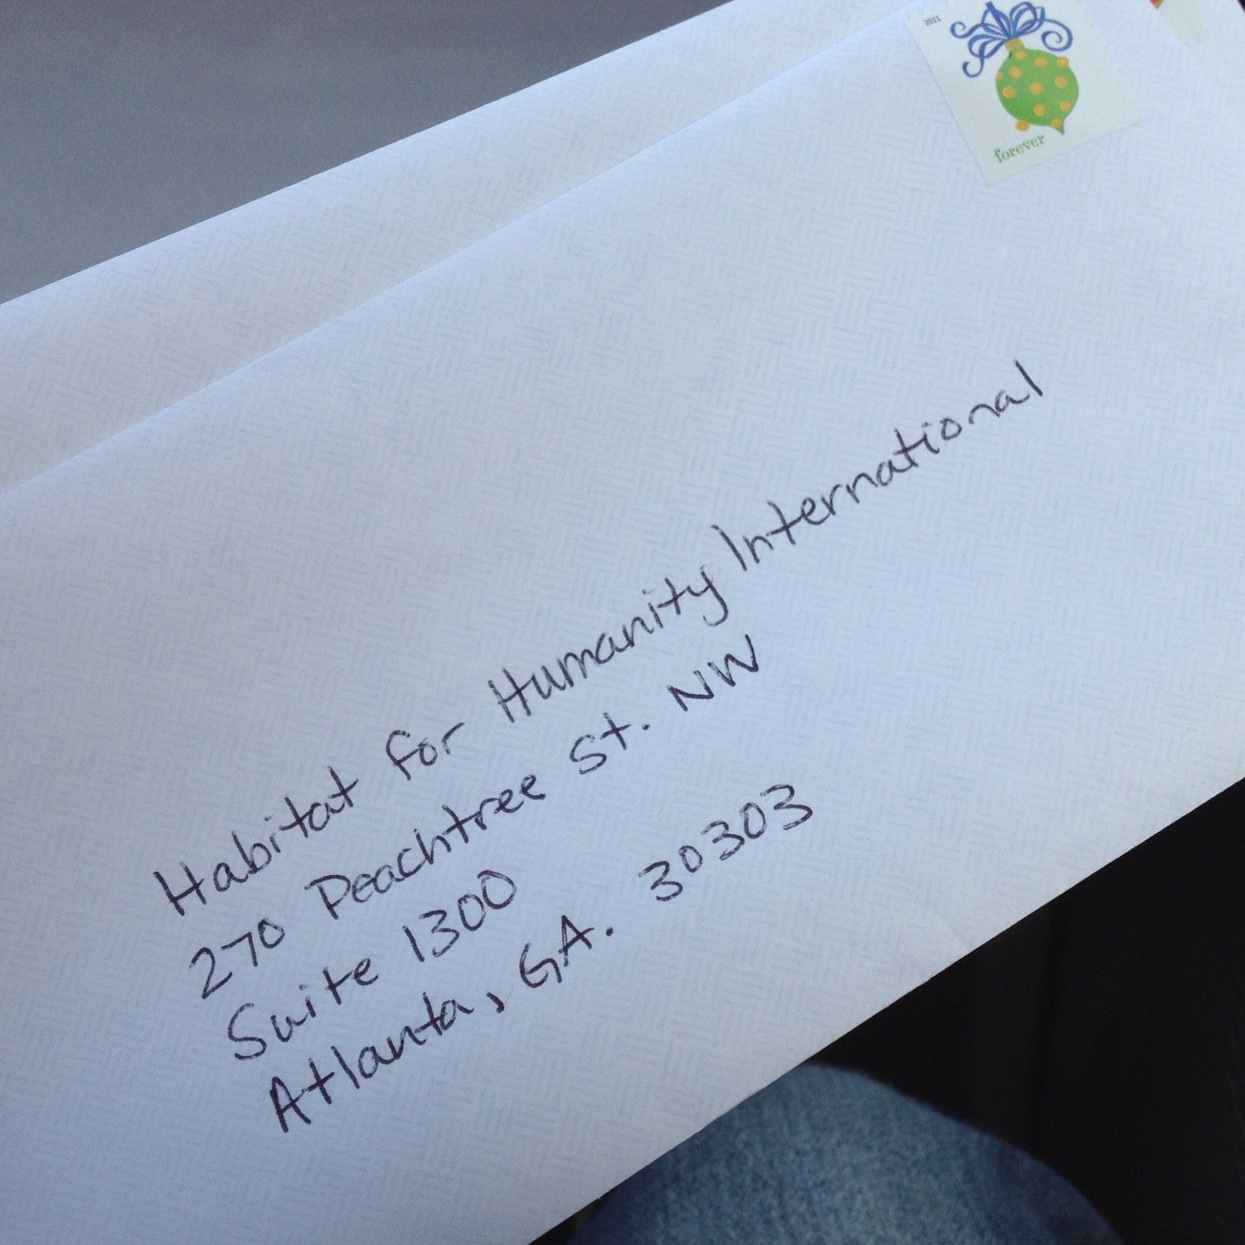 2011
forever
Habitat for Humanity International
270 Peachtree St. NW
Suite 1300
Atlanta, GA. 30303